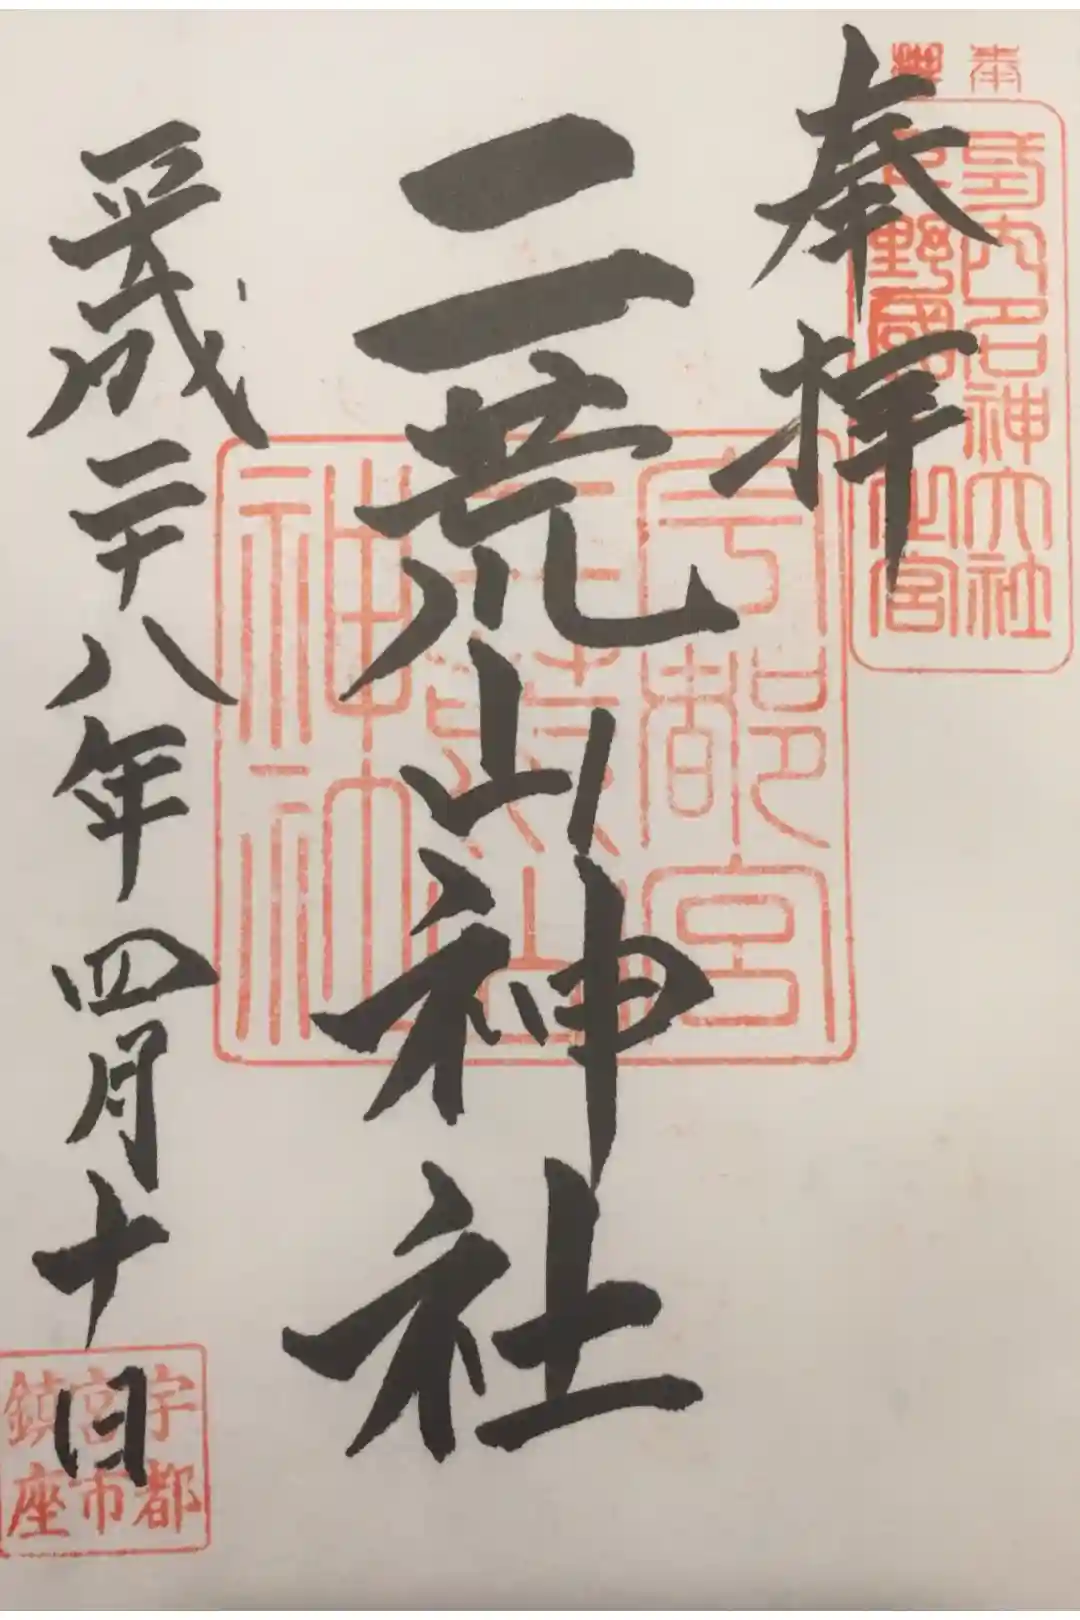 奉拝
二荒山神社
平成二十八年四月十日
式内名神大社
下野國一之宮
宇都宮
二荒山
神社
宇都
宮市
鎮座